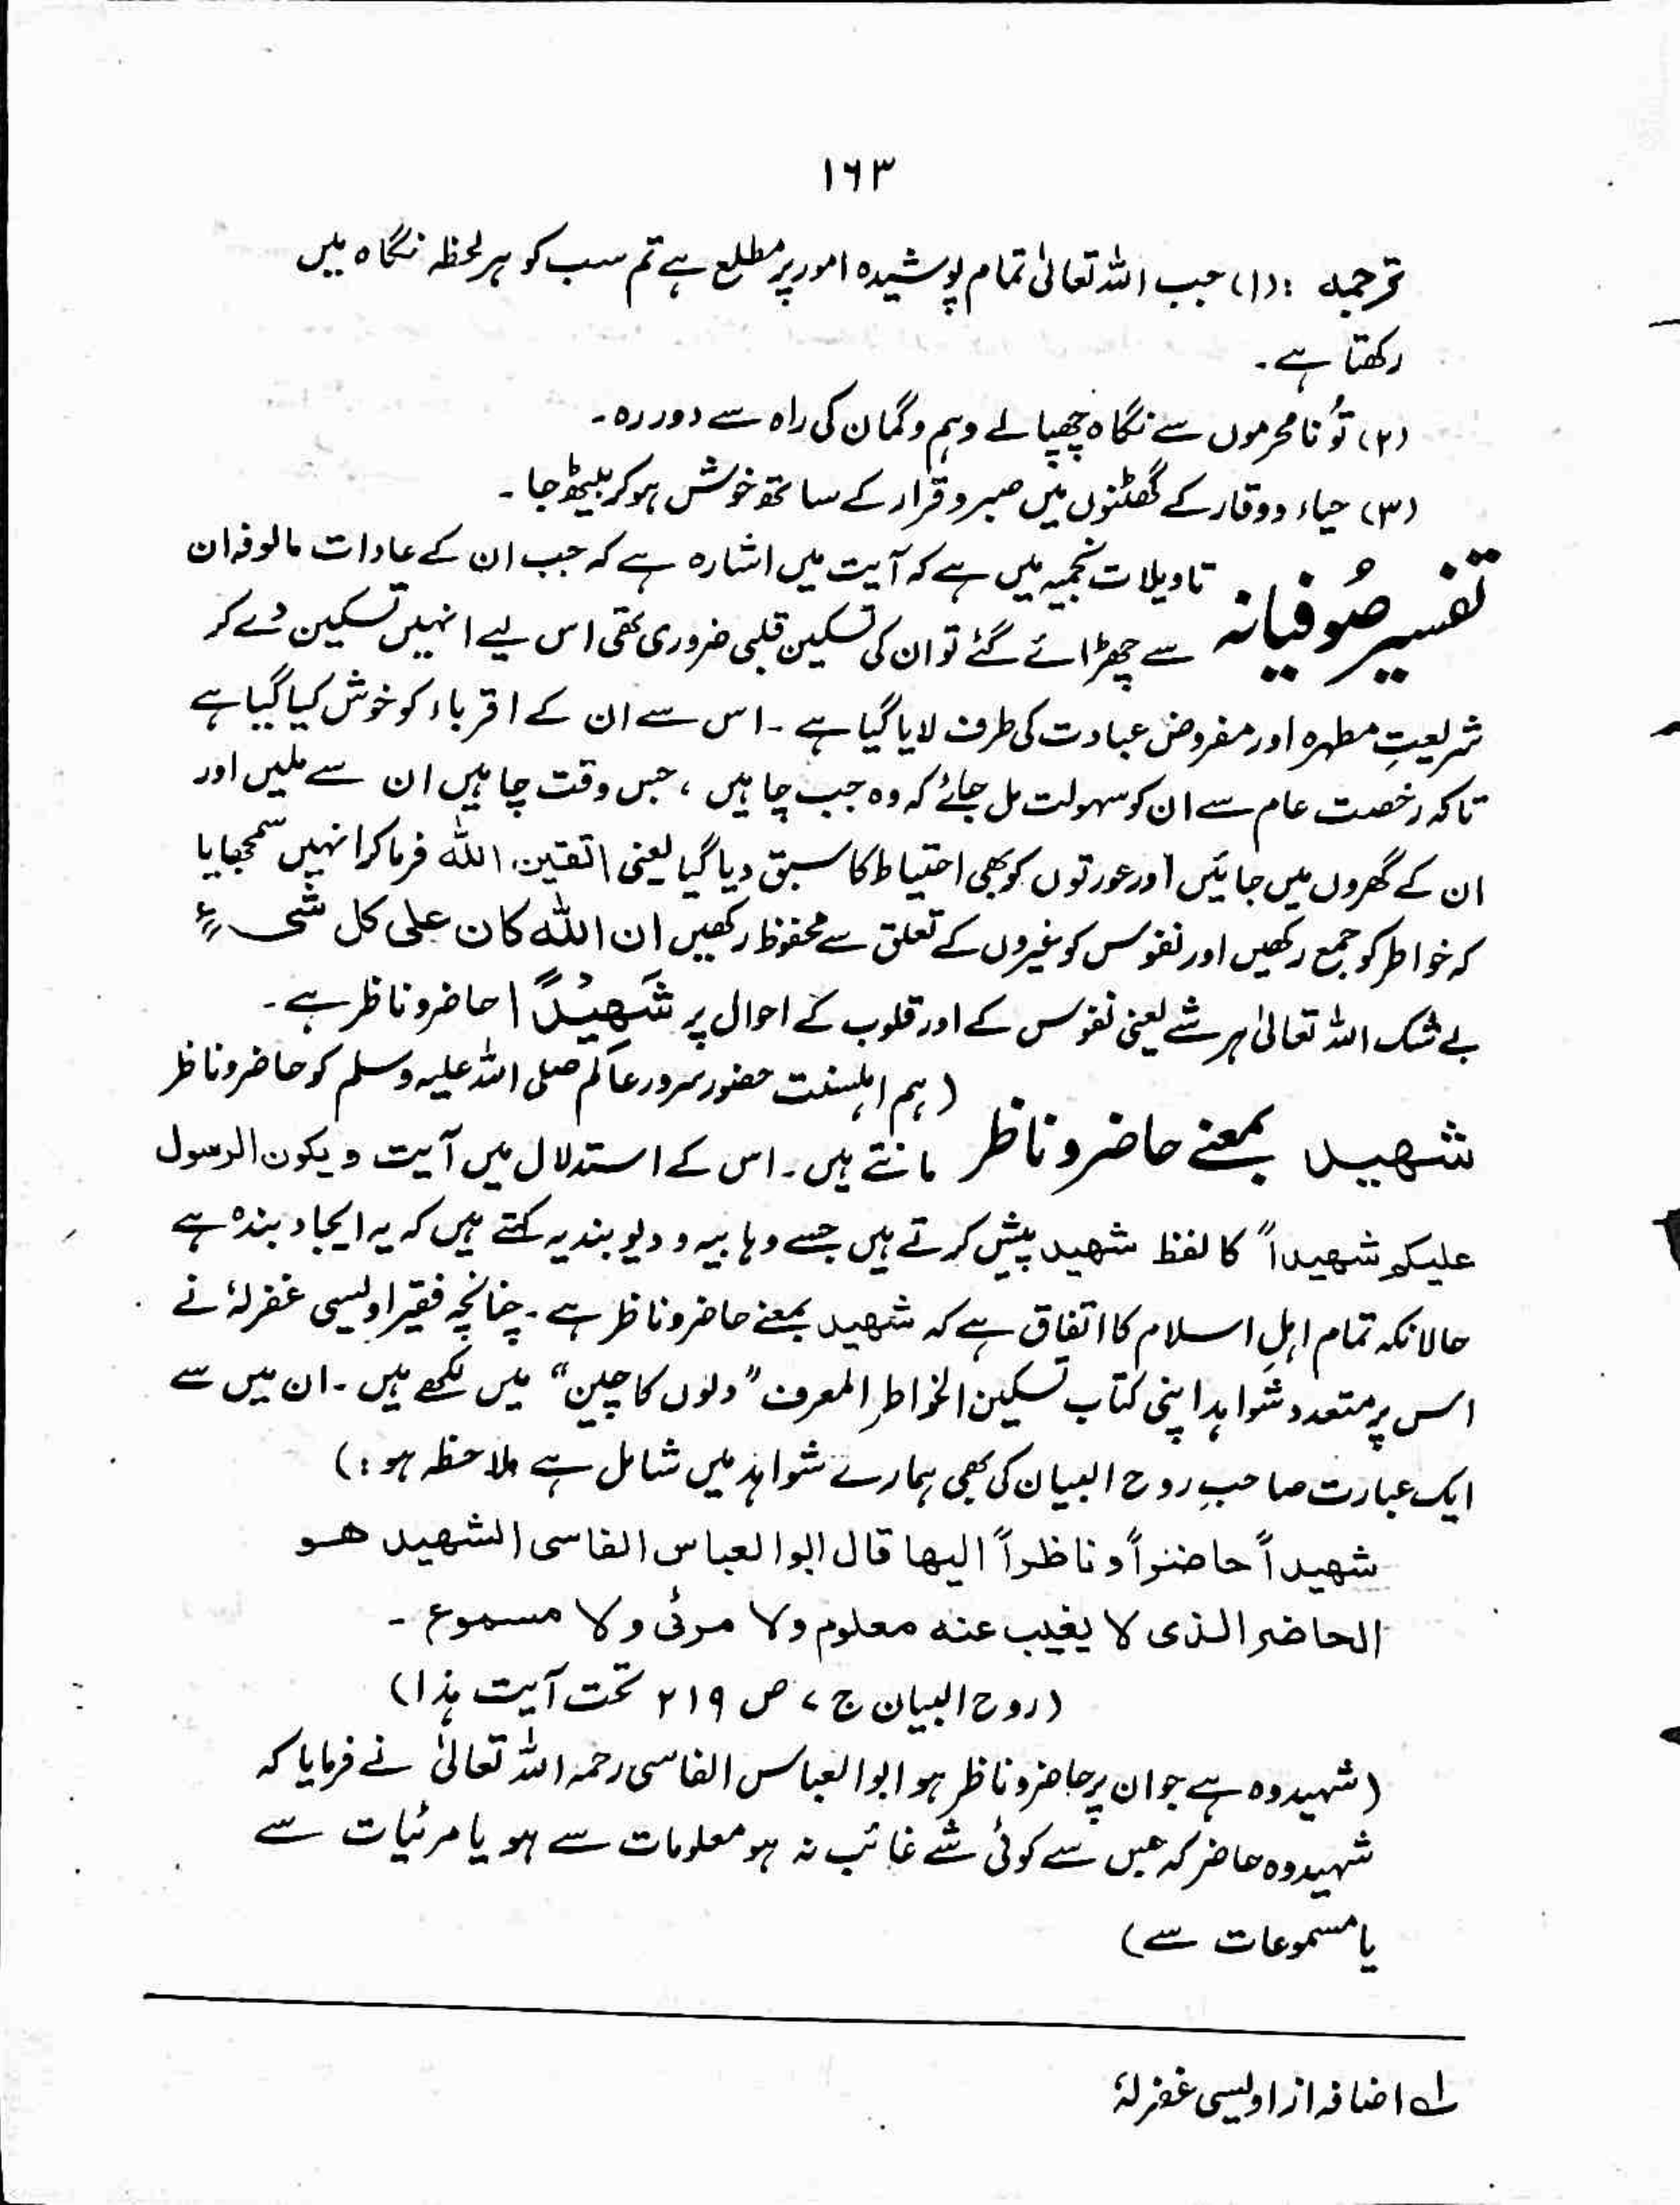 ۱۶۳
ترجمہ : (۱) جب اللہ تعالیٰ تمام پوشیدہ امور پر مطلع ہے تم سب کو ہر لحظہ نگاہ میں
رکھتا ہے۔
(۲) تُو نامحرموں سے نگاہ چھپا لے وہم و گمان کی راہ سے دور رہ۔
(۳) حیاء و وقار کے گھٹنوں میں صبر و قرار کے ساتھ خوش ہو کر بیٹھ جا۔
تفسیر صُوفیانہ تاویلات نجمیہ میں ہے کہ آیت میں اشارہ ہے کہ جب ان کے عادات مالوفہ ان
سے چھڑائے گئے تو ان کی تسکین قلبی ضروری تھی اس لیے انہیں تسکین دے کر
شریعتِ مطہرہ اور مفروض عبادت کی طرف لایا گیا ہے ۔ اس سے ان کے اقرباء کو خوش کیا گیا ہے
تاکہ رخصت عام سے ان کو سہولت مل جائے کہ وہ جب چاہیں ، جس وقت چاہیں ان سے ملیں اور
ان کے گھروں میں جائیں اور عورتوں کو بھی احتیاط کا سبق دیا گیا یعنی اتقین اللہ فرما کر انہیں سمجھایا
کہ خواطر کو جمع رکھیں اور نفوس کو غیروں کے تعلق سے محفوظ رکھیں ان اللہ کان علی کل شیءٍ
بے شک اللہ تعالیٰ ہر شے یعنی نفوس کے اور قلوب کے احوال پر شَہِیْدًا حاضر و ناظر ہے۔
شھید بمعنے حاضر و ناظر (ہم اہلسنت حضور سرور عالم صلی اللہ علیہ وسلم کو حاضر و ناظر
مانتے ہیں۔ اس کے استدلال میں آیت و یکون الرسول
علیکم شھیداً کا لفظ شھید پیش کرتے ہیں جسے وہابیہ و دیوبندیہ کہتے ہیں کہ یہ ایجاد بندہ ہے
حالانکہ تمام اہلِ اسلام کا اتفاق ہے کہ شھید بمعنے حاضر و ناظر ہے۔ چنانچہ فقیر اویسی غفرلہٗ نے
اس پر متعدد شواہد اپنی کتاب تسکین الخواطر المعرف "دلوں کا چین" میں لکھے ہیں ۔ ان میں سے
ایک عبارت صاحبِ روح البیان کی بھی ہمارے شواہد میں شامل ہے ملاحظہ ہو :)
شھیداً حاضراً و ناظراً الیھا قال ابوالعباس الفاسی الشھید ھو
الحاضر الذی لا یغیب عنہ معلوم ولا مرئی ولا مسموع ۔
(روح البیان ج ۷ ص ۲۱۹ تحت آیت ہذا)
(شہید وہ ہے جو ان پر حاضر و ناظر ہو ابوالعباس الفاسی رحمہ اللہ تعالیٰ نے فرمایا کہ
شہید وہ حاضر کہ جس سے کوئی شے غائب نہ ہو معلومات سے ہو یا مرئیات سے
یا مسموعات سے)
لہ اضافہ از اویسی غفرلہٗ